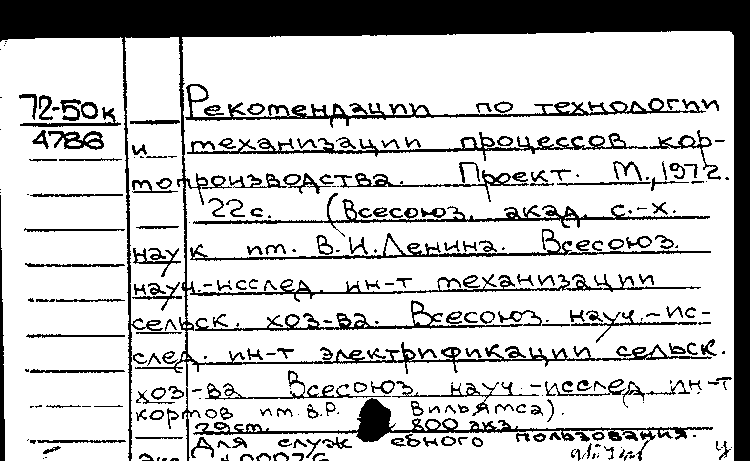 72-50к
4786
Рекомендации по технологии
и механизации процессов кор-
мопроизводства. Проект. М., 1972.
22с. (Всесоюз. акад. с.-х.
наук им. В.И.Ленина. Всесоюз.
науч.-исслед. ин-т механизации
сельск. хоз-ва. Всесоюз. науч.-ис-
след. ин-т электрификации сельск.
хоз-ва Всесоюз. науч.-исслед. ин-т
кормов им. В.Р. Вильямса).
29см. 800 экз.
Для служебного пользования.